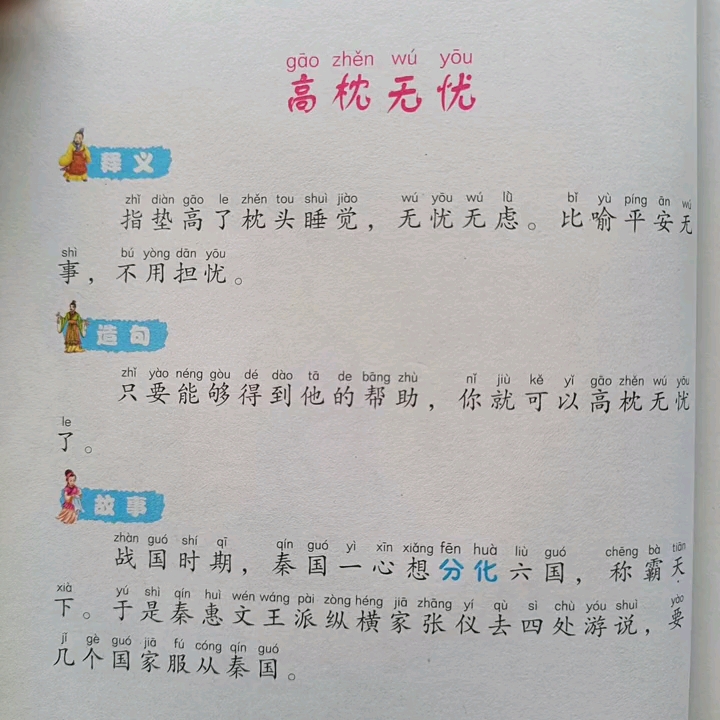 gāo zhěn wú yōu
高枕无忧
释义
zhǐ diàn gāo le zhěn tou shuì jiào wú yōu wú lǜ bǐ yù píng ān wú
指垫高了枕头睡觉，无忧无虑。比喻平安无
shì bú yòng dān yōu
事，不用担忧。
造句
zhǐ yào néng gòu dé dào tā de bāng zhù nǐ jiù kě yǐ gāo zhěn wú yōu
只要能够得到他的帮助，你就可以高枕无忧
le
了。
故事
zhàn guó shí qī qín guó yì xīn xiǎng fēn huà liù guó chēng bà tiān
战国时期，秦国一心想分化六国，称霸天
xià yú shì qín huì wén wáng pài zòng héng jiā zhāng yí qù sì chù yóu shuì yào
下。于是秦惠文王派纵横家张仪去四处游说，要
jǐ gè guó jiā fú cóng qín guó
几个国家服从秦国。